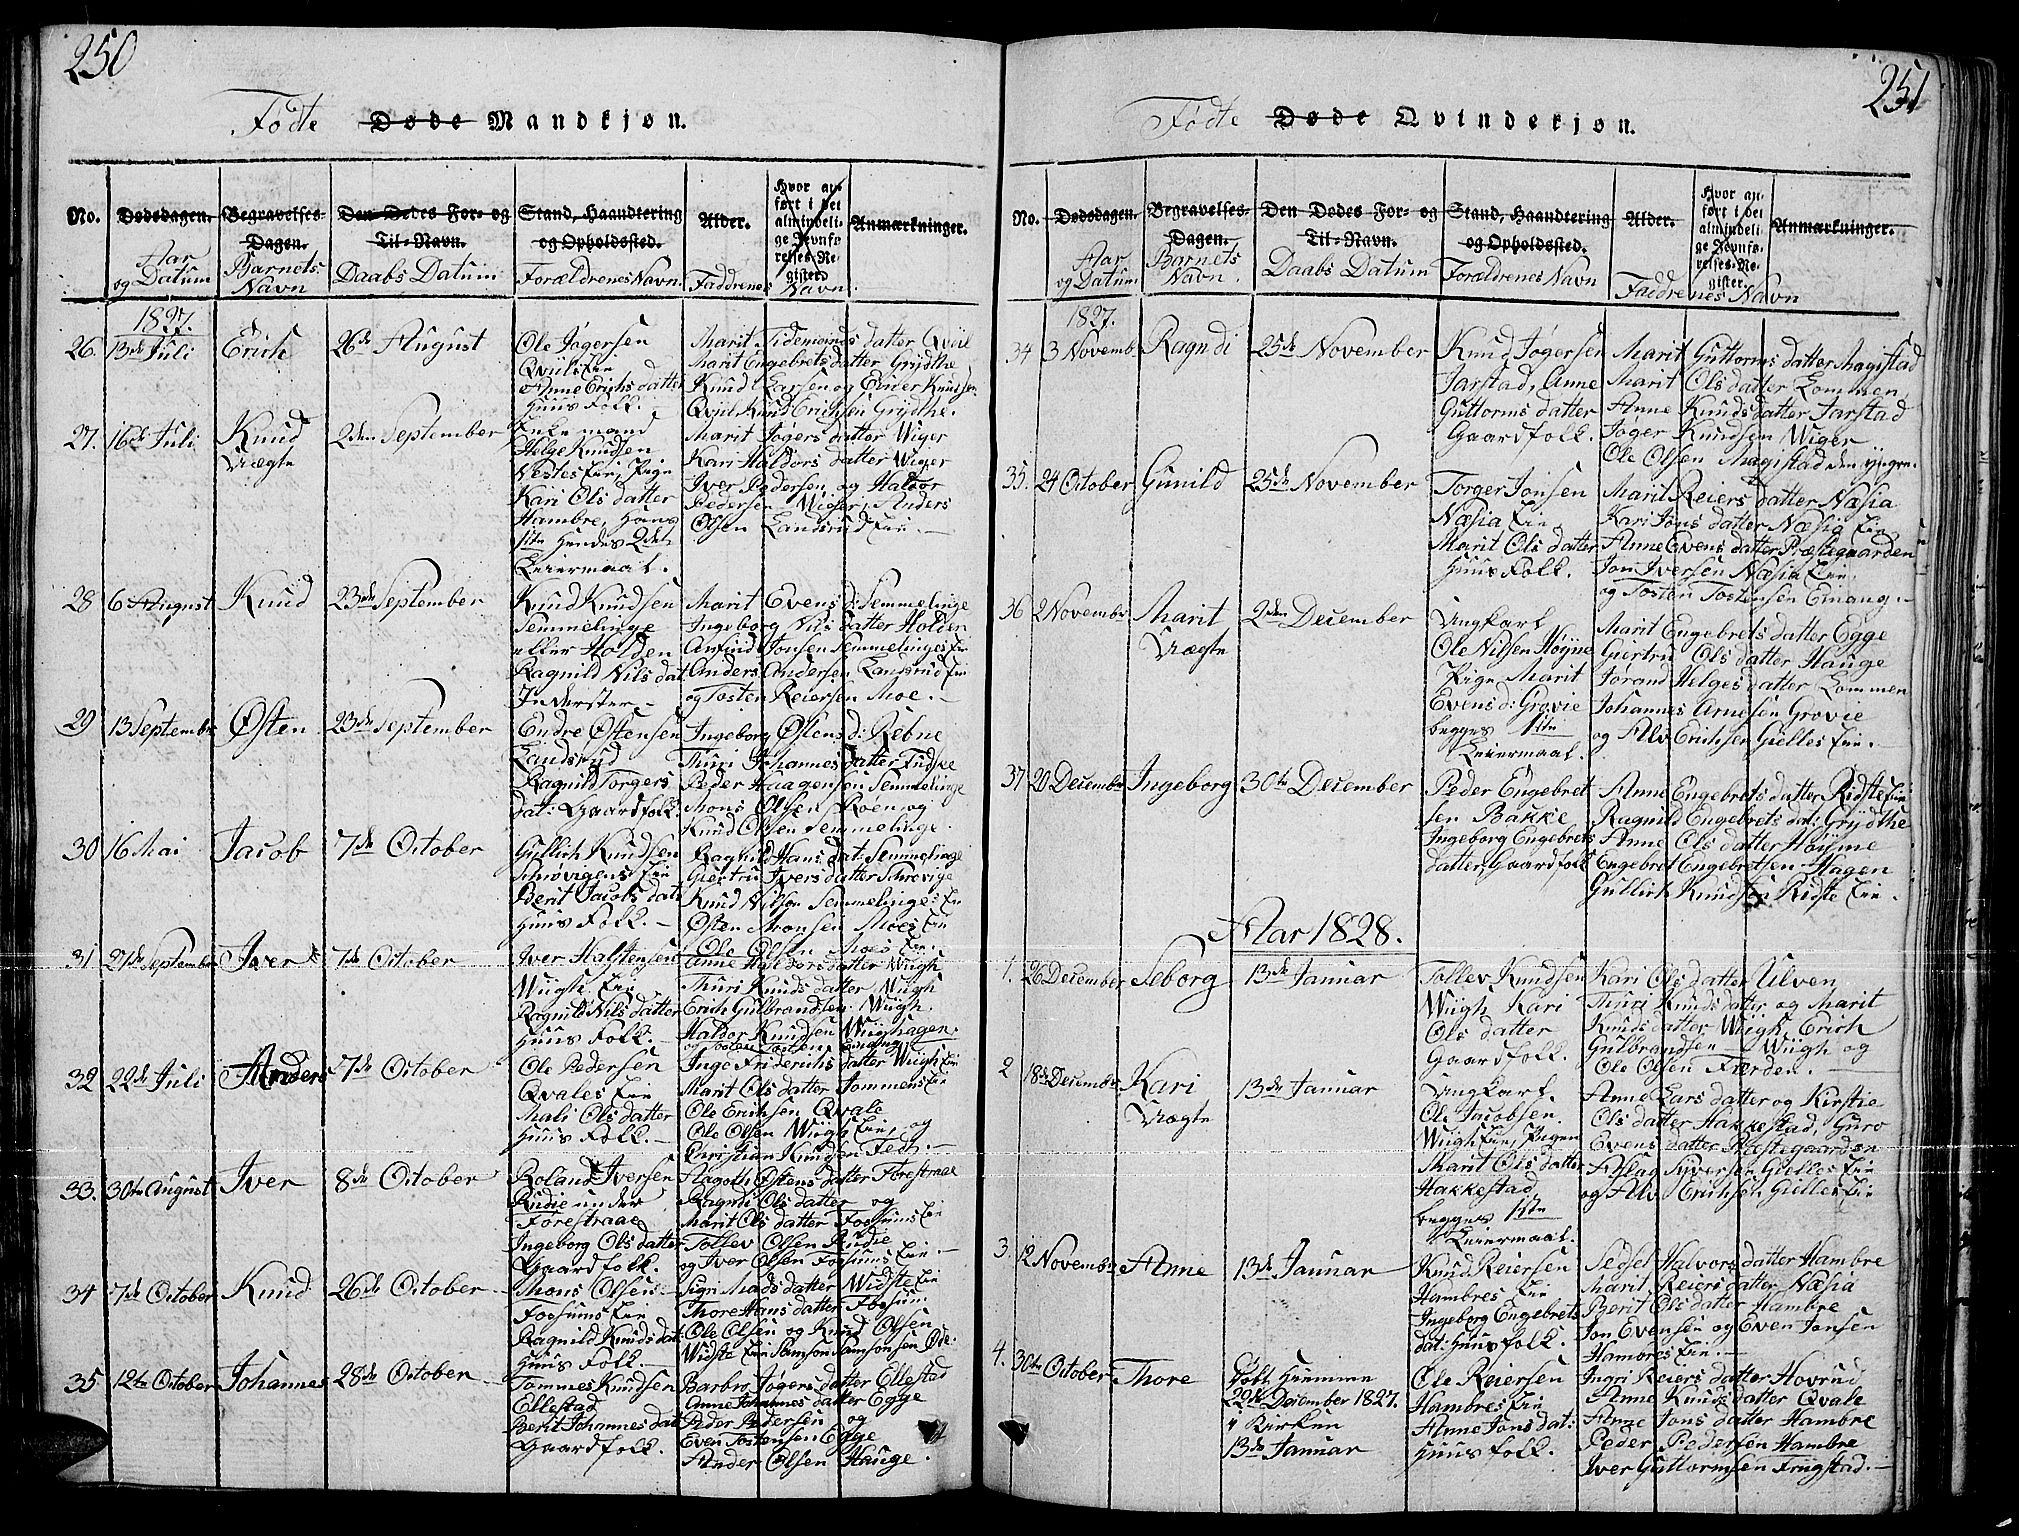 250
Fødte Døde Mandkjøn.
No.
Dødsdagen.
Aar
og Datum
Begravelses-
Dagen.
Barnets
Navn
Den Dødes For- og
Til-Navn.
Daabs Datum
Stand, Haandtering
og Opholdssted.
Forældrenes Navn.
Alder.
Faddrenes Navn.
Hvor an-
ført i det
almindeli-
ge Jevnfø-
relses-Re-
gister.
Anmærkninger.
1827.
26. 13de Juli Erich 26de August
Ole Jøgersen
Qviils Eie
Anne Erichs datter
Huus Folk.
Marit Tidemœnds datter Qviil
Marit Engebrets datter Grÿdthe
Knud Larsen og Eliver Knudsen
Qviil Knud Erichsen Grÿdthe.
27. 16de Juli Knud
Uægte
2den September
Enkemand
Helge Knudsen
Nestes Eie, Pige
Kari Ols datter
Hambre, Hans
1ste Hendes 2det
Leiermaal.
Marit Jøgers datter Wiger
Kari Haldors datter Wiger
Iver Pedersen og Haldor
Pedersen Wiger, Anders
Olsen Landsrud Eie. —
28 6 August Knud 23de September
Knud Knudsen
Semmelinge
eller Holden
Ragnild Nils dat
Inderster —
Marit Evens d: Semmelinge
Ingeborg Nils datter Holden
Anfind Jonsen Semmelinges Eie
Anders Andersen Landsrud Eie
og Tosten Reiersen Moe. —
29 13 September Østen 23de September
Endre Østensen
Landsrud
Ragnild Torgers
dat: Gaardfolk.
Ingeborg Østens d: Rebne
Thuri Johannes datter Fudske
Peder Haagensen Semmelinge
Mons Olsen Roen og
Knud Olsen Semmelinge.
30 16 Mai Jacob 7de October
Gullich Knudsen
Schrøvigens Eie
Berit Jacobs dat:
Huus Folk. —
Ragnild Hans dat: Semmelinge
Giertru Ivers datter Schrøvige
Knud Nilsen Semmelinges Eie
Østen Aronsen Moes Eie
Ole Olsen Moes Eie.
31 27de September Iver 7de October
Iver Halstensen
Wiigh Eie
Ragnild Nils datter
Huus Folk. —
Anne Haldors datter Wiigh
Thuri Knuds datter Wiigh
Erich Gulbrandsen Wiigh.
Haldor Knudsen Wiighagen.
og Tosten Tostens. Emang
32 22de Juli Anders 7de October
Ole Pedersen
Qvales Eie
Mali Ols datter
Huus Folk. —
Inge Friderichs datter Wiigh Eie
Marit Ols datter Jommens Eie
Ole Erichsen Qvale
Ole Olsen Wiigh Eie, og
Christian Knudsen Fed. —
33. 30te August Iver 8de October
Roland Iversen
Rudie under
Forestraae
Ingeborg Ols datter
Gaardfolk.
Aagoth Østens datter Forestraae
Ragndi Ols datter og
Marit Ols datter Fossums Eie
Tollev Olsen Rudie
og Iver Olsen Fossums Eie. —
34 7de October Knud 26de October
Mons Olsen
Fossums Eie
Ragnild Knuds dat:
Huus Folk. —
Sigri Mads datter Widste Eie
Thore Hans datter Fossum.
Ole Olsen og Knud Olsen
Widste Eie Samson Samsonsen Øde.
35 12te October Johannes 28de October
Tommes Knudsen
Ellestad
Berit Johannes dat
Gaardfolk.
Barbro Jøgers datter Ellestad
Anne Johannes datter Egge
Peder Pedersen og
Even Tostensen Egge
Ander Olsen Hauge.
251
Fødte Døde Qvindekjøn.
No.
Dødsdagen.
Aar
og Datum
Begravelses-
Dagen.
Barnets
Navn.
Den Dødes For- og
Til-Navn.
Daabs Datum
Stand, Haandtering
og Opholdssted.
Forældrenes Navn
Alder.
Faddrenes Navn
Hvor an-
ført i det
almindeli-
ge Jevnfø-
relses-Re-
gister.
Anmærkninger.
1827.
34 3 Novemb. Ragndi 25de November
Knud Jøgersen
Jarstad, Anne
Guttorms datter
Gaardfolk.
Marit Guttorms datter Magistad
Marit Ols datter Lommen
Anne Knuds datter Jarstad
Jøger Knudsen Wiger
Ole Olsen Magistad den yngre.
35. 24 October Gunild 25de November
Torger Jonsen
Næsia Eie
Marit Ols datter
Huus Folk.
Marit Reiers datter Næsia
Kari Jons datter Næsia Eie
Anne Evens datter Præstegaarden
Jon Iversen Næsia Eie,
og Tosten Tostensen Emang. —
36 2 Novembr Marit
Uægte
2den December
Ungkarl
Ole Nilsen Høÿne
Pige Marit
Evens d: Grøvie
begges 1ste
Leiermaal.
Marit Engebrets datter Egge
Giertru Ols datter Hauge
Jorand Helges datter Lommen
Johannes Arnesen Grøvie
og Alv Erichsen Gielles Eie. —
37 20 Decembr Ingeborg 30te December
Peder Engebret
sen Bakke
Ingeborg Engebrets
datter Gaardfolk
Anne Engebrets datter Ridste Eie
Ragnild Engebrets dat: Grÿdthe
Anne Ols datter Høÿme
Engebret Engebretsen Hagen
Gullich Knudsen Ridste Eie.
Aar 1828.
1. 26 December Seborg 13de Januar
Tollev Knudsen
Wiigh Kari
Ols datter
Gaardfolk.
Kari Ols datter Ulven
Thuri Knuds datter og Marit
Knuds datter Wiigh, Erich
Gulbrandsen Wiigh og
Ole Olsen Færden. —
2 18de Decembr Kari
Uægte
13de Januar
Ungkarl.
Ole Jacobsen
Wiigh Eie, Pigen
Marit Ols datter
Hakkestad
begges 1ste
Leiermaal.
Anne Lars datter og Kirstie
Ols datter Hakkestad, Guro
Evens datter Præstegaarden
Aslag Siversen Gielles Eie
og Alv Erichsen Gilles Eie
3. 12 Novembr Anne 13de Januar
Knud Reiersen
Hambres Eie
Ingeborg Engebrets
dat: Huusfolk.
Sedsel Halvors datter Hambre
Marit Reiers datter Næsia
Berit Ols datter Hambre
Jon Evensen og Even Jonsen
Hambres Eie. —
4. 30te October Thore
Døbt Hiemme
22de December 1827.
i Kirken
13de Januar
Ole Reiersen
Hambres Eie
Anne Jons dat:
Huusfolk.
Ingri Reiers datter Hovrud
Anne Knuds datter Qvale
Anne Jons datter Hambre
Peder Pedersen Hambre
Iver Guttormsen Friigstad. —